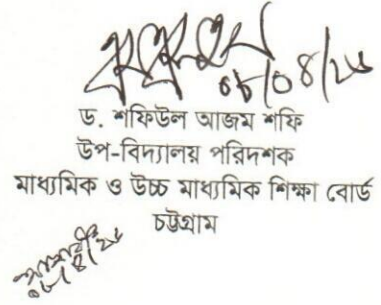 ০৮/০৪/২৫
ড. শফিউল আজম শফি
উপ-বিদ্যালয় পরিদশক
মাধ্যমিক ও উচ্চ মাধ্যমিক শিক্ষা বোর্ড
চট্টগ্রাম